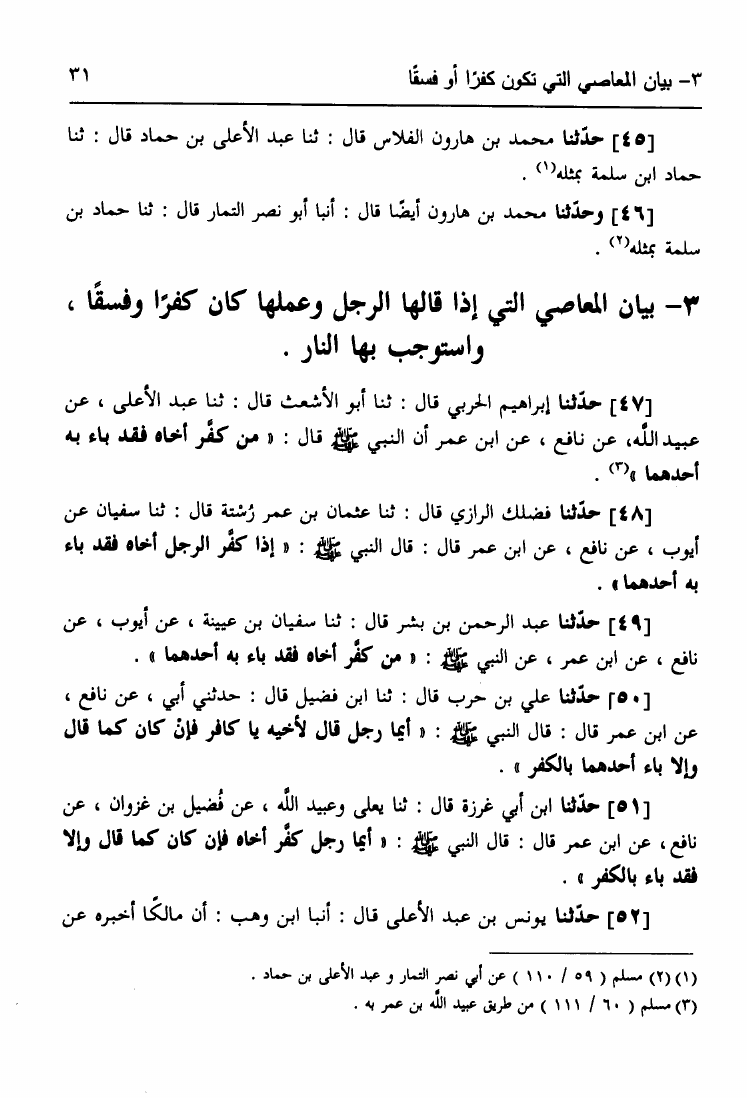 ٣- بيان المعاصي التي تكون كفرًا أو فسقًا ٣١
[٤٥] حدّثنا محمد بن هارون الفلاس قال : ثنا عبد الأعلى بن حماد قال : ثنا
حماد ابن سلمة بمثله(١) .
[٤٦] وحدّثنا محمد بن هارون أيضًا قال : أنبا أبو نصر التمار قال : ثنا حماد بن
سلمة بمثله(٢) .
٣- بيان المعاصي التي إذا قالها الرجل وعملها كان كفرًا وفسقًا ،
واستوجب بها النار .
[٤٧] حدّثنا إبراهيم الحربي قال : ثنا أبو الأشعث قال : ثنا عبد الأعلى ، عن
عبيد اللَّه، عن نافع ، عن ابن عمر أن النبي ﷺ قال : « من كفَّر أخاه فقد باء به
أحدهما »(٣) .
[٤٨] حدّثنا فضلك الرازي قال : ثنا عثمان بن عمر رُسْتة قال : ثنا سفيان عن
أيوب ، عن نافع ، عن ابن عمر قال : قال النبي ﷺ : « إذا كفَّر الرجل أخاه فقد باء
به أحدهما» .
[٤٩] حدّثنا عبد الرحمن بن بشر قال : ثنا سفيان بن عيينة ، عن أيوب ، عن
نافع ، عن ابن عمر ، عن النبي ﷺ : « من كفَّر أخاه فقد باء به أحدهما » .
[٥٠] حدّثنا علي بن حرب قال : ثنا ابن فضيل قال : حدثني أبي ، عن نافع ،
عن ابن عمر قال : قال النبي ﷺ : « أيما رجل قال لأخيه يا كافر فإنْ كان كما قال
وإلا باء أحدهما بالكفر » .
[٥١] حدّثنا ابن أبي غرزة قال : ثنا يعلى وعبيد اللَّه ، عن فُضيل بن غزوان ، عن
نافع، عن ابن عمر قال : قال النبي ﷺ : « أيما رجل كفَّر أخاه فإن كان كما قال وإلا
فقد باء بالكفر » .
[٥٢] حدّثنا يونس بن عبد الأعلى قال : أنبا ابن وهب : أن مالكًا أخبره عن
(١)(٢) مسلم ( ٥٩ / ١١٠ ) عن أبي نصر التمار و عبد الأعلى بن حماد .
(٣) مسلم ( ٦٠ / ١١١ ) من طريق عبيد اللَّه بن عمر به .